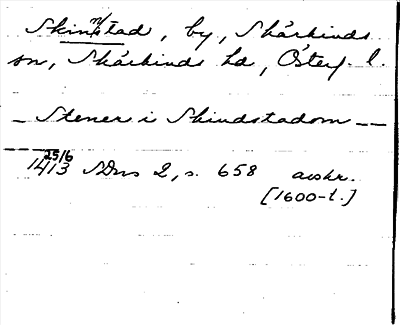 Skinnstad, by, Skärkinds
sn, Skärkinds hd, Österg. l.
— Stener i Skindstadom — —
25/6
1413 SDns 2, s. 658 avskr.
[1600-t.]